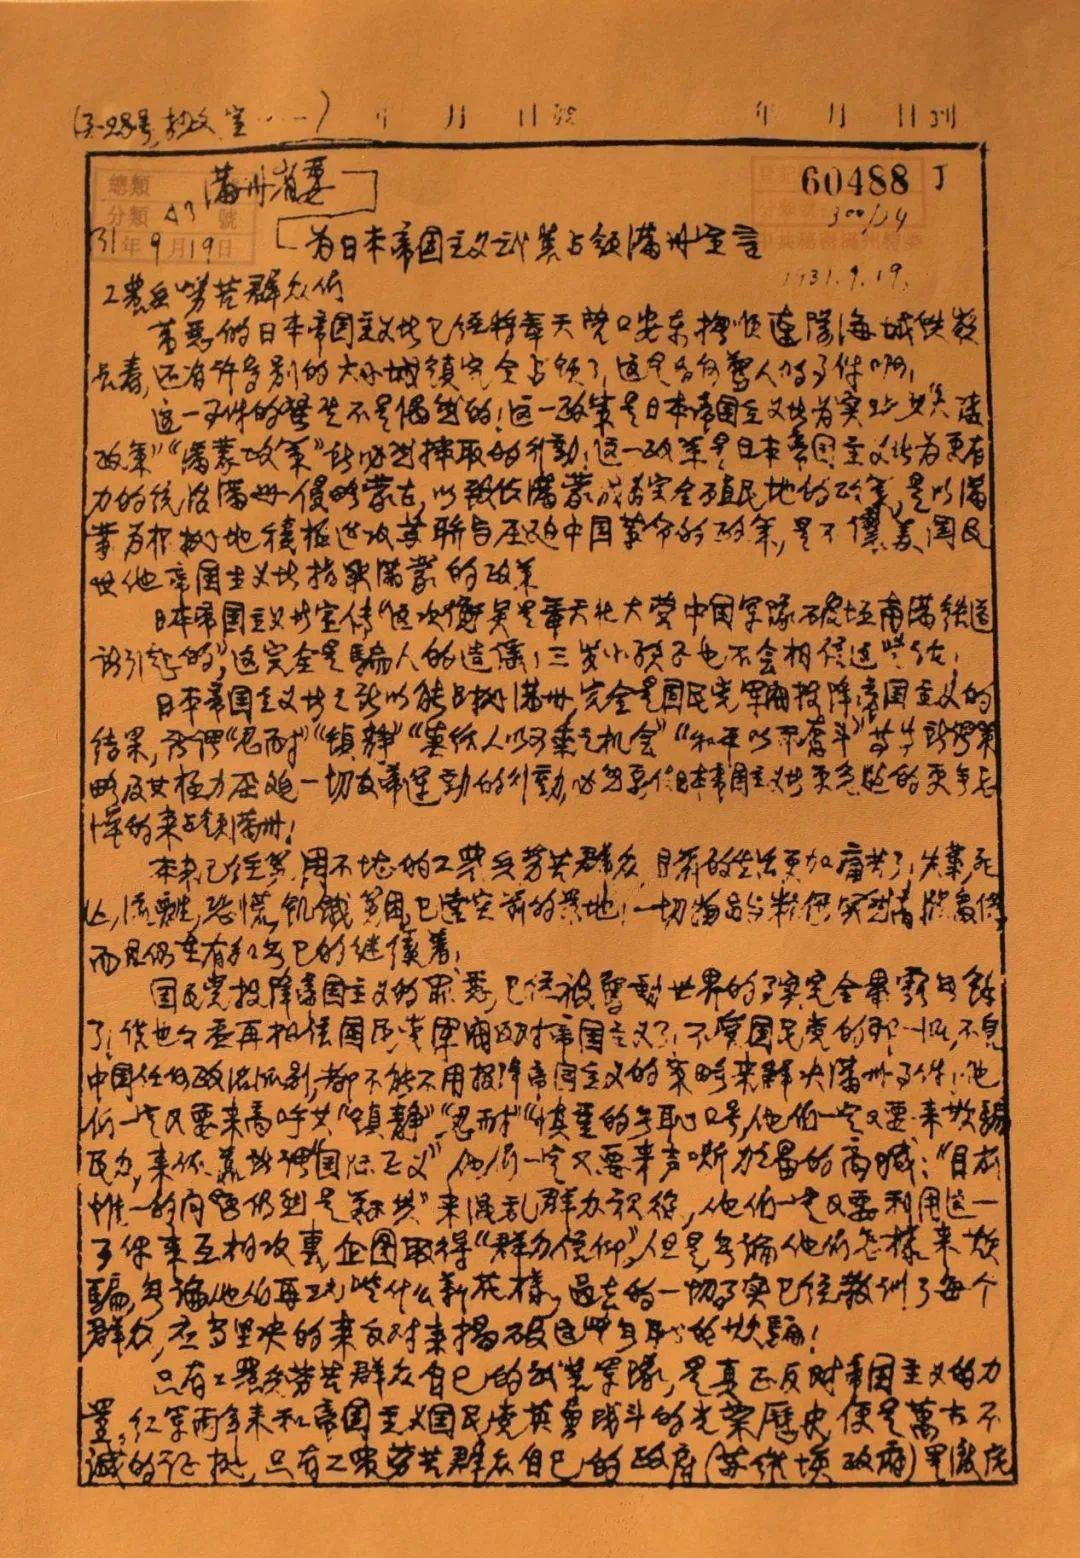 年 月 日
年 月 日到
總類
分類 A3 號
31年9月19日
满州省委
60488
1931.9.19.
为日本帝国主义武装占领满州宣言
工农兵劳苦群众们
万恶的日本帝国主义者已经将奉天营口安东抚顺连隊海城铁嶺
长春,还有许多别的大小城镇完全占领了,这是多么惊人的事件啊!
这一事件的發生不是偶然的!这一政策是日本帝国主义者为实
政策”“满蒙政策”所必然採取的行動!这一政策是日本帝国主义者为更有
力的统治满州侵略蒙古,以致使满蒙成为完全殖民地的政策,是以满
蒙为根據地積極進攻苏联与压迫中国革命的政策,是不讓美国
其他帝国主义者指染满蒙的政策
日本帝国主义者宣传“这次衝突是奉天北大营中国军隊破坏南满铁道
所引起的”,这完全是騙人的造谣,三岁小孩子也不会相信这些话,
日本帝国主义者之所以能占據满州,完全是国民党军阀投降帝国主义的
结果,所谓“忍耐”“镇静”“莫给人以可乘之机会”“和平以不奋斗”等等
略及其極力压迫一切反帝運動的行動,必然要使日本帝国主义者更急进的更無忌
惮的来占领满州!
本来已经穷困不堪的工农兵劳苦群众,目前的生活更加痛苦了,失業死
亡,流離,恐慌,飢饿穷困,已達空前的景地!一切物品与粮食突然
而且仍在有加無已的继續着,
国民党投降帝国主义的罪恶,已经被驚動世界的事实完全暴露無餘
了!谁也不要再相信国民党军阀反对帝国主义了!不管国民党的那一派,不管
中国任何政治派别,都不能不用投降帝国主义的策略来解决满州事件,他
们一定又要来高呼其“镇静”“忍耐”“慎重的無恥口号,他们一定又要来欺騙
民众,来依靠所谓“国际正义”他们一定又要来声嘶力竭的高喊:“目前
惟一的问题仍然是剿共”来混乱群众视线,他们一定又要利用这一
事件来互相攻讦,企图取得“群众信仰”,但是無論他们怎樣来欺
騙,無論他们再玩些什么新花樣,过去的一切事实已经教训了每个
群众,应当坚决的来反对来揭破这些無恥的欺騙!
只有工農兵劳苦群众自己的武装军隊,是真正反对帝国主义的力
量,红军两年来和帝国主义国民党英勇战斗的光荣歷史,便是萬古不
滅的证據,只有工農劳苦群众自己的政府(苏维埃政府)